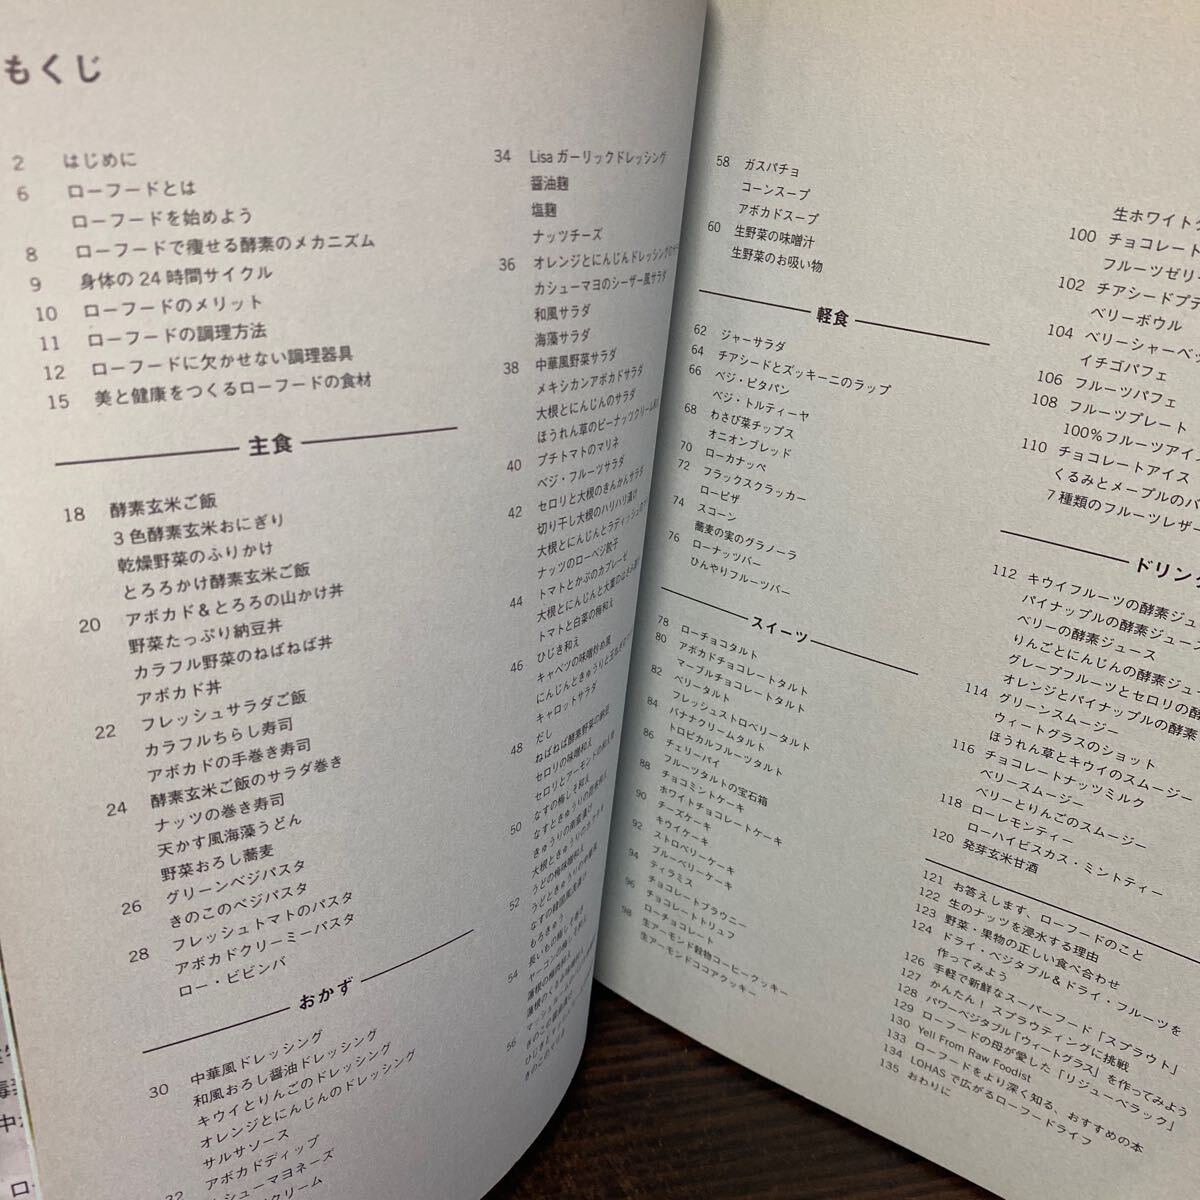 もくじ
2 はじめに
6 ローフードとは
ローフードを始めよう
8 ローフードで痩せる酵素のメカニズム
9 身体の24時間サイクル
10 ローフードのメリット
11 ローフードの調理方法
12 ローフードに欠かせない調理器具
15 美と健康をつくるローフードの食材
主食
18 酵素玄米ご飯
3色酵素玄米おにぎり
乾燥野菜のふりかけ
とろろかけ酵素玄米ご飯
20 アボカド&とろろの山かけ丼
野菜たっぷり納豆丼
カラフル野菜のねばねば丼
アボカド丼
22 フレッシュサラダご飯
カラフルちらし寿司
アボカドの手巻き寿司
24 酵素玄米ご飯のサラダ巻き
ナッツの巻き寿司
天かす風海藻うどん
野菜おろし蕎麦
26 グリーンベジパスタ
きのこのベジパスタ
28 フレッシュトマトのパスタ
アボカドクリーミーパスタ
ロー・ビビンバ
おかず
30 中華風ドレッシング
和風おろし醤油ドレッシング
キウイとりんごのドレッシング
オレンジとにんじんのドレッシング
サルサソース
32 アボカドディップ
シューマヨネーズ
クリーム
34 Lisaガーリックドレッシング
醤油麹
塩麹
ナッツチーズ
36 オレンジとにんじんドレッシングの
カシューマヨのシーザー風サラダ
和風サラダ
海藻サラダ
38 中華風野菜サラダ
メキシカンアボカドサラダ
大根とにんじんのサラダ
ほうれん草のピーナッツクリーム和え
40 プチトマトのマリネ
ベジ・フルーツサラダ
42 セロリと大根のきんかんサラダ
切り干し大根のハリハリ漬け
大根とにんじんとラディッシュの
ナッツのローベジ餃子
44 トマトとかぶのカプレーゼ
大根とにんじんと大葉の
トマトと白菜の梅和え
46 ひじき和え
キャベツの味噌炒め風
にんじんときゅうりと
キャロットサラダ
48 だし
ねばねば酵素野菜の納豆
セロリの味噌和え
セロリとアーモンドの和え物
50 なすの梅しそ和え
なすときゅうりの
きゅうりの
大根ときゅうりの
52 うどの梅味噌和え
うどときゅうりの中華風
なすの韓国風浅漬け
もろきゅう
54 長いもの梅しそ巻き
ヤーコンの梅しそ和え
蓮根の梅肉和え
蓮根のくるみ味噌和え
56 きのこの醤油漬け
58 ガスパチョ
コーンスープ
アボカドスープ
60 生野菜の味噌汁
生野菜のお吸い物
軽食
62 ジャーサラダ
64 チアシードとズッキーニのラップ
66 ベジ・ピタパン
ベジ・トルティーヤ
68 わさび菜チップス
オニオンブレッド
70 ローカナッペ
72 フラックスクラッカー
ローピザ
74 スコーン
蕎麦の実のグラノーラ
76 ローナッツバー
ひんやりフルーツバー
スイーツ
78 ローチョコタルト
80 アボカドチョコレートタルト
マーブルチョコレートタルト
82 ベリータルト
フレッシュストロベリータルト
84 バナナクリームタルト
トロピカルフルーツタルト
86 チェリーパイ
フルーツタルトの宝石箱
88 チョコミントケーキ
ホワイトチョコレートケーキ
90 チーズケーキ
キウイケーキ
92 ストロベリーケーキ
ブルーベリーケーキ
94 ティラミス
チョコレートブラウニー
96 チョコレートトリュフ
ローチョコレート
98 生アーモンド穀物コーヒークッキー
生アーモンドココアクッキー
生ホワイト
100 チョコレート
フルーツゼリー
102 チアシードプ
ベリーボウル
104 ベリーシャーベッ
イチゴパフェ
106 フルーツパフェ
108 フルーツプレート
100%フルーツアイ
110 チョコレートアイス
くるみとメープルの
7種類のフルーツレザー
ドリン
112 キウイフルーツの酵素ジュ
パイナップルの酵素ジュース
ベリーの酵素ジュース
りんごとにんじんの酵素ジュー
グレープフルーツとセロリの酵
オレンジとパイナップルの酵素
114 グリーンスムージー
ウィートグラスのショット
ほうれん草とキウイのスムージー
116 チョコレートナッツミルク
ベリースムージー
ベリーとりんごのスムージー
118 ローレモンティー
ローハイビスカス・ミントティー
120 発芽玄米甘酒
121 お答えします、ローフードのこと
122 生のナッツを浸水する理由
123 野菜・果物の正しい食べ合わせ
124 ドライ・ベジタブル&ドライ・フルーツを
作ってみよう
126 手軽で新鮮なスーパーフード「スプラウト」
127 かんたん！スプラウティングに挑戦
128 パワーベジタブル「ウィートグラス」を作ってみよう
129 ローフードの母が愛した「リジューベラック」
130 Yell From Raw Foodist
133 ローフードをより深く知る、おすすめの本
134 LOHASで広がるローフードライフ
135 おわりに